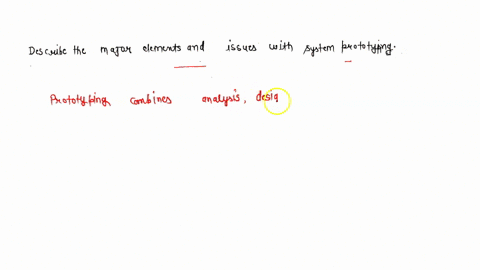 Describe the major elements and issues with system prototyping.
Prototyping combines analysis, desig